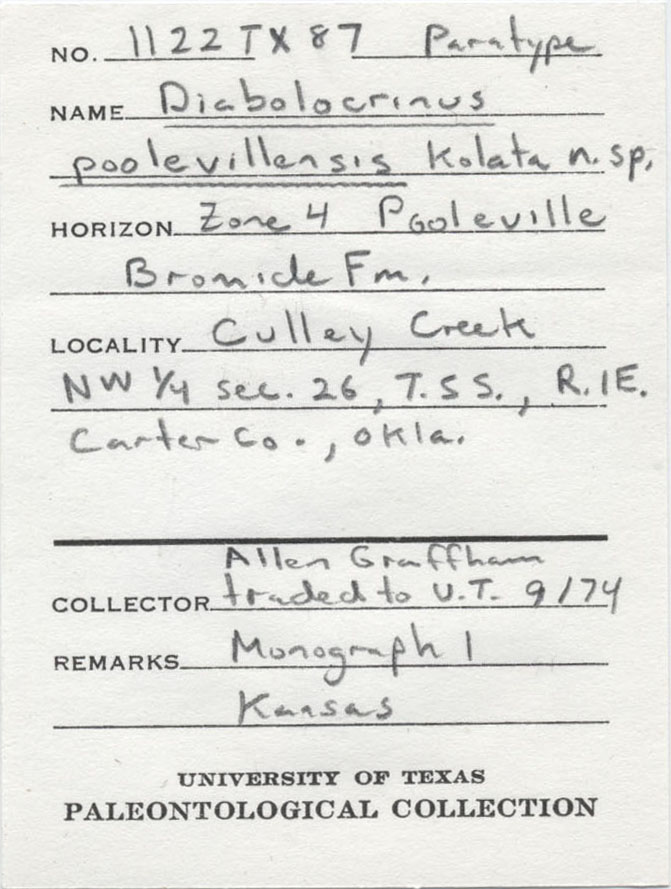 NO. 1122TX87 Paratype
NAME Diabolocrinus
poolevillensis Kolata n. sp.
HORIZON Zone 4 Pooleville
Bromide Fm.
LOCALITY Culley Creek
NW 1/4 sec. 26, T.5S., R.1E.
Carter Co., Okla.
Allen Graffham
COLLECTOR traded to U.T. 9/74
REMARKS Monograph 1
Kansas
UNIVERSITY OF TEXAS
PALEONTOLOGICAL COLLECTION